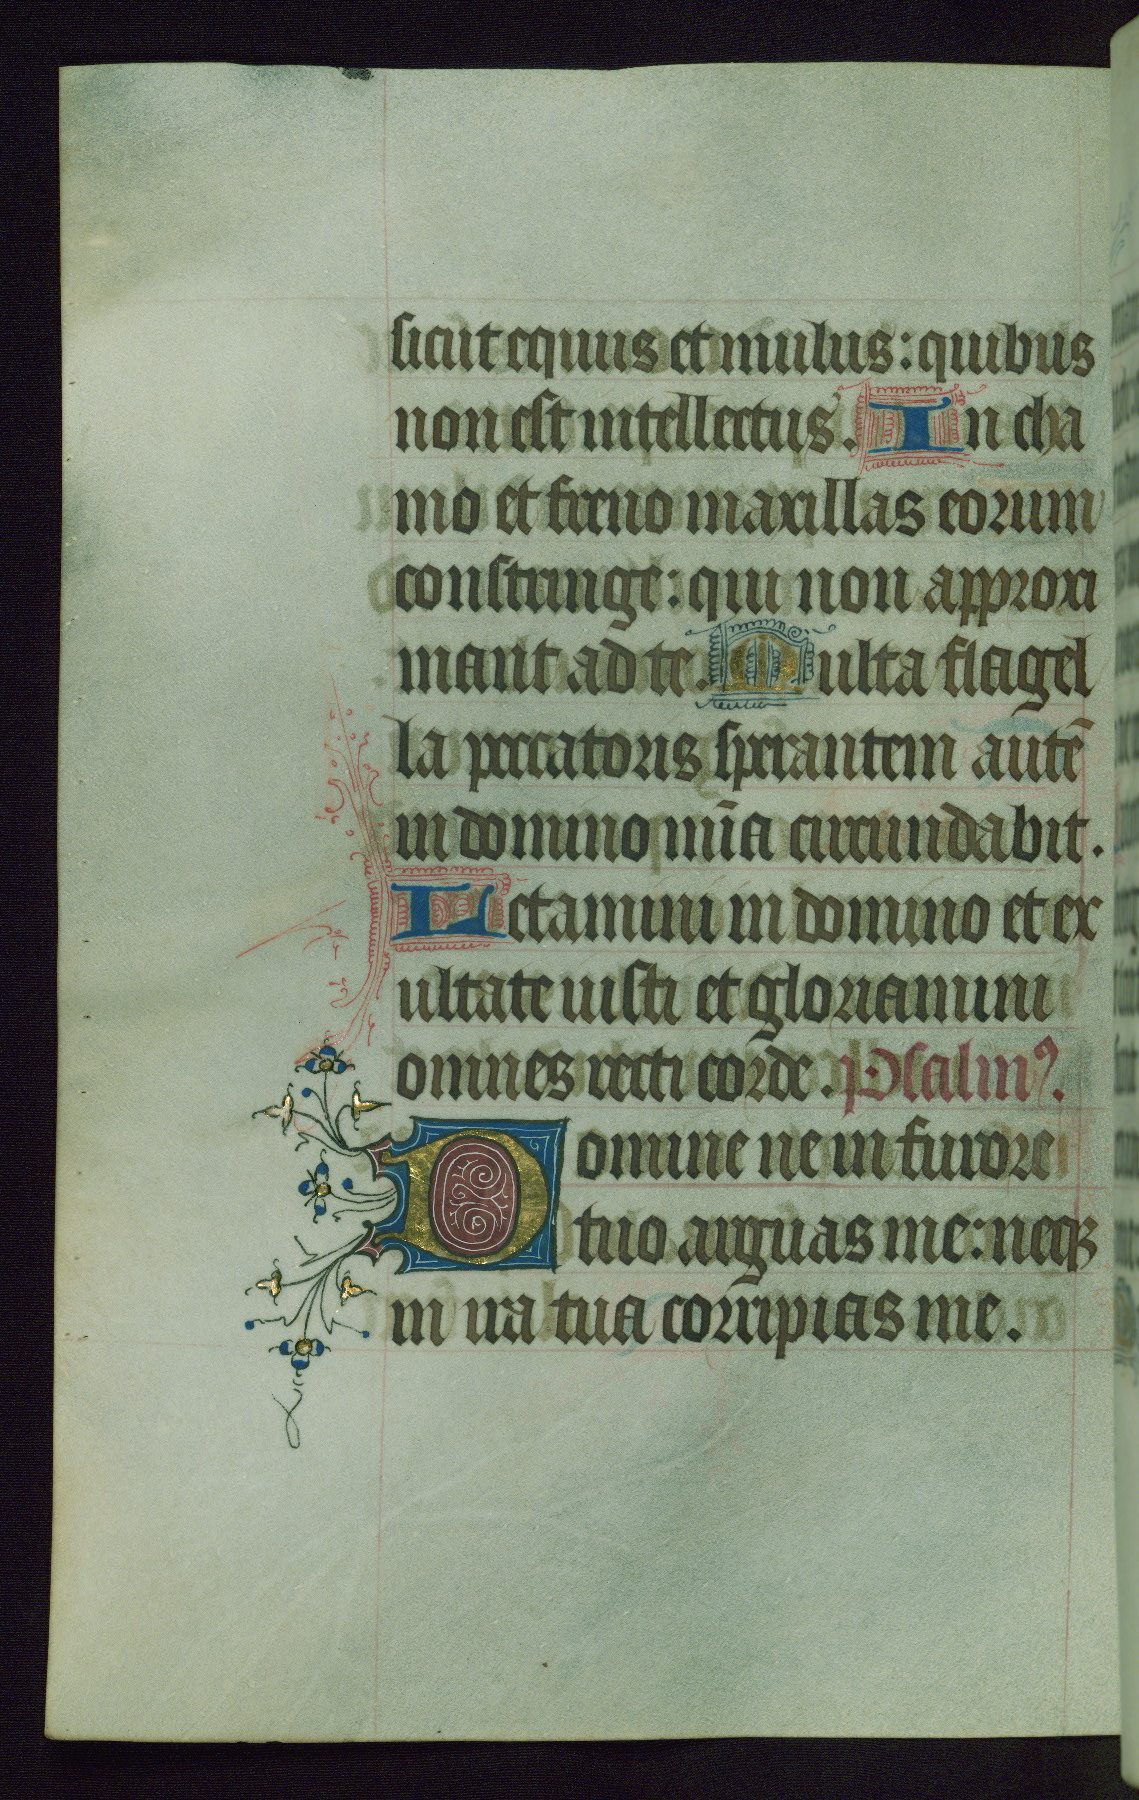 sicut equus et mulus: quibus
non est intellectus. In cha
mo et freno maxillas eorum
constringe: qui non approxi
mant ad te. Multa flagel
la peccatoris sperantem autē
in domino mīa circundabit.
Letamini in domino et ex
ultate iusti et gloriamini
omnes recti corde. Psalmꝰ.
Domine ne in furore
tuo arguas me: neqꝫ
in ira tua corripias me.